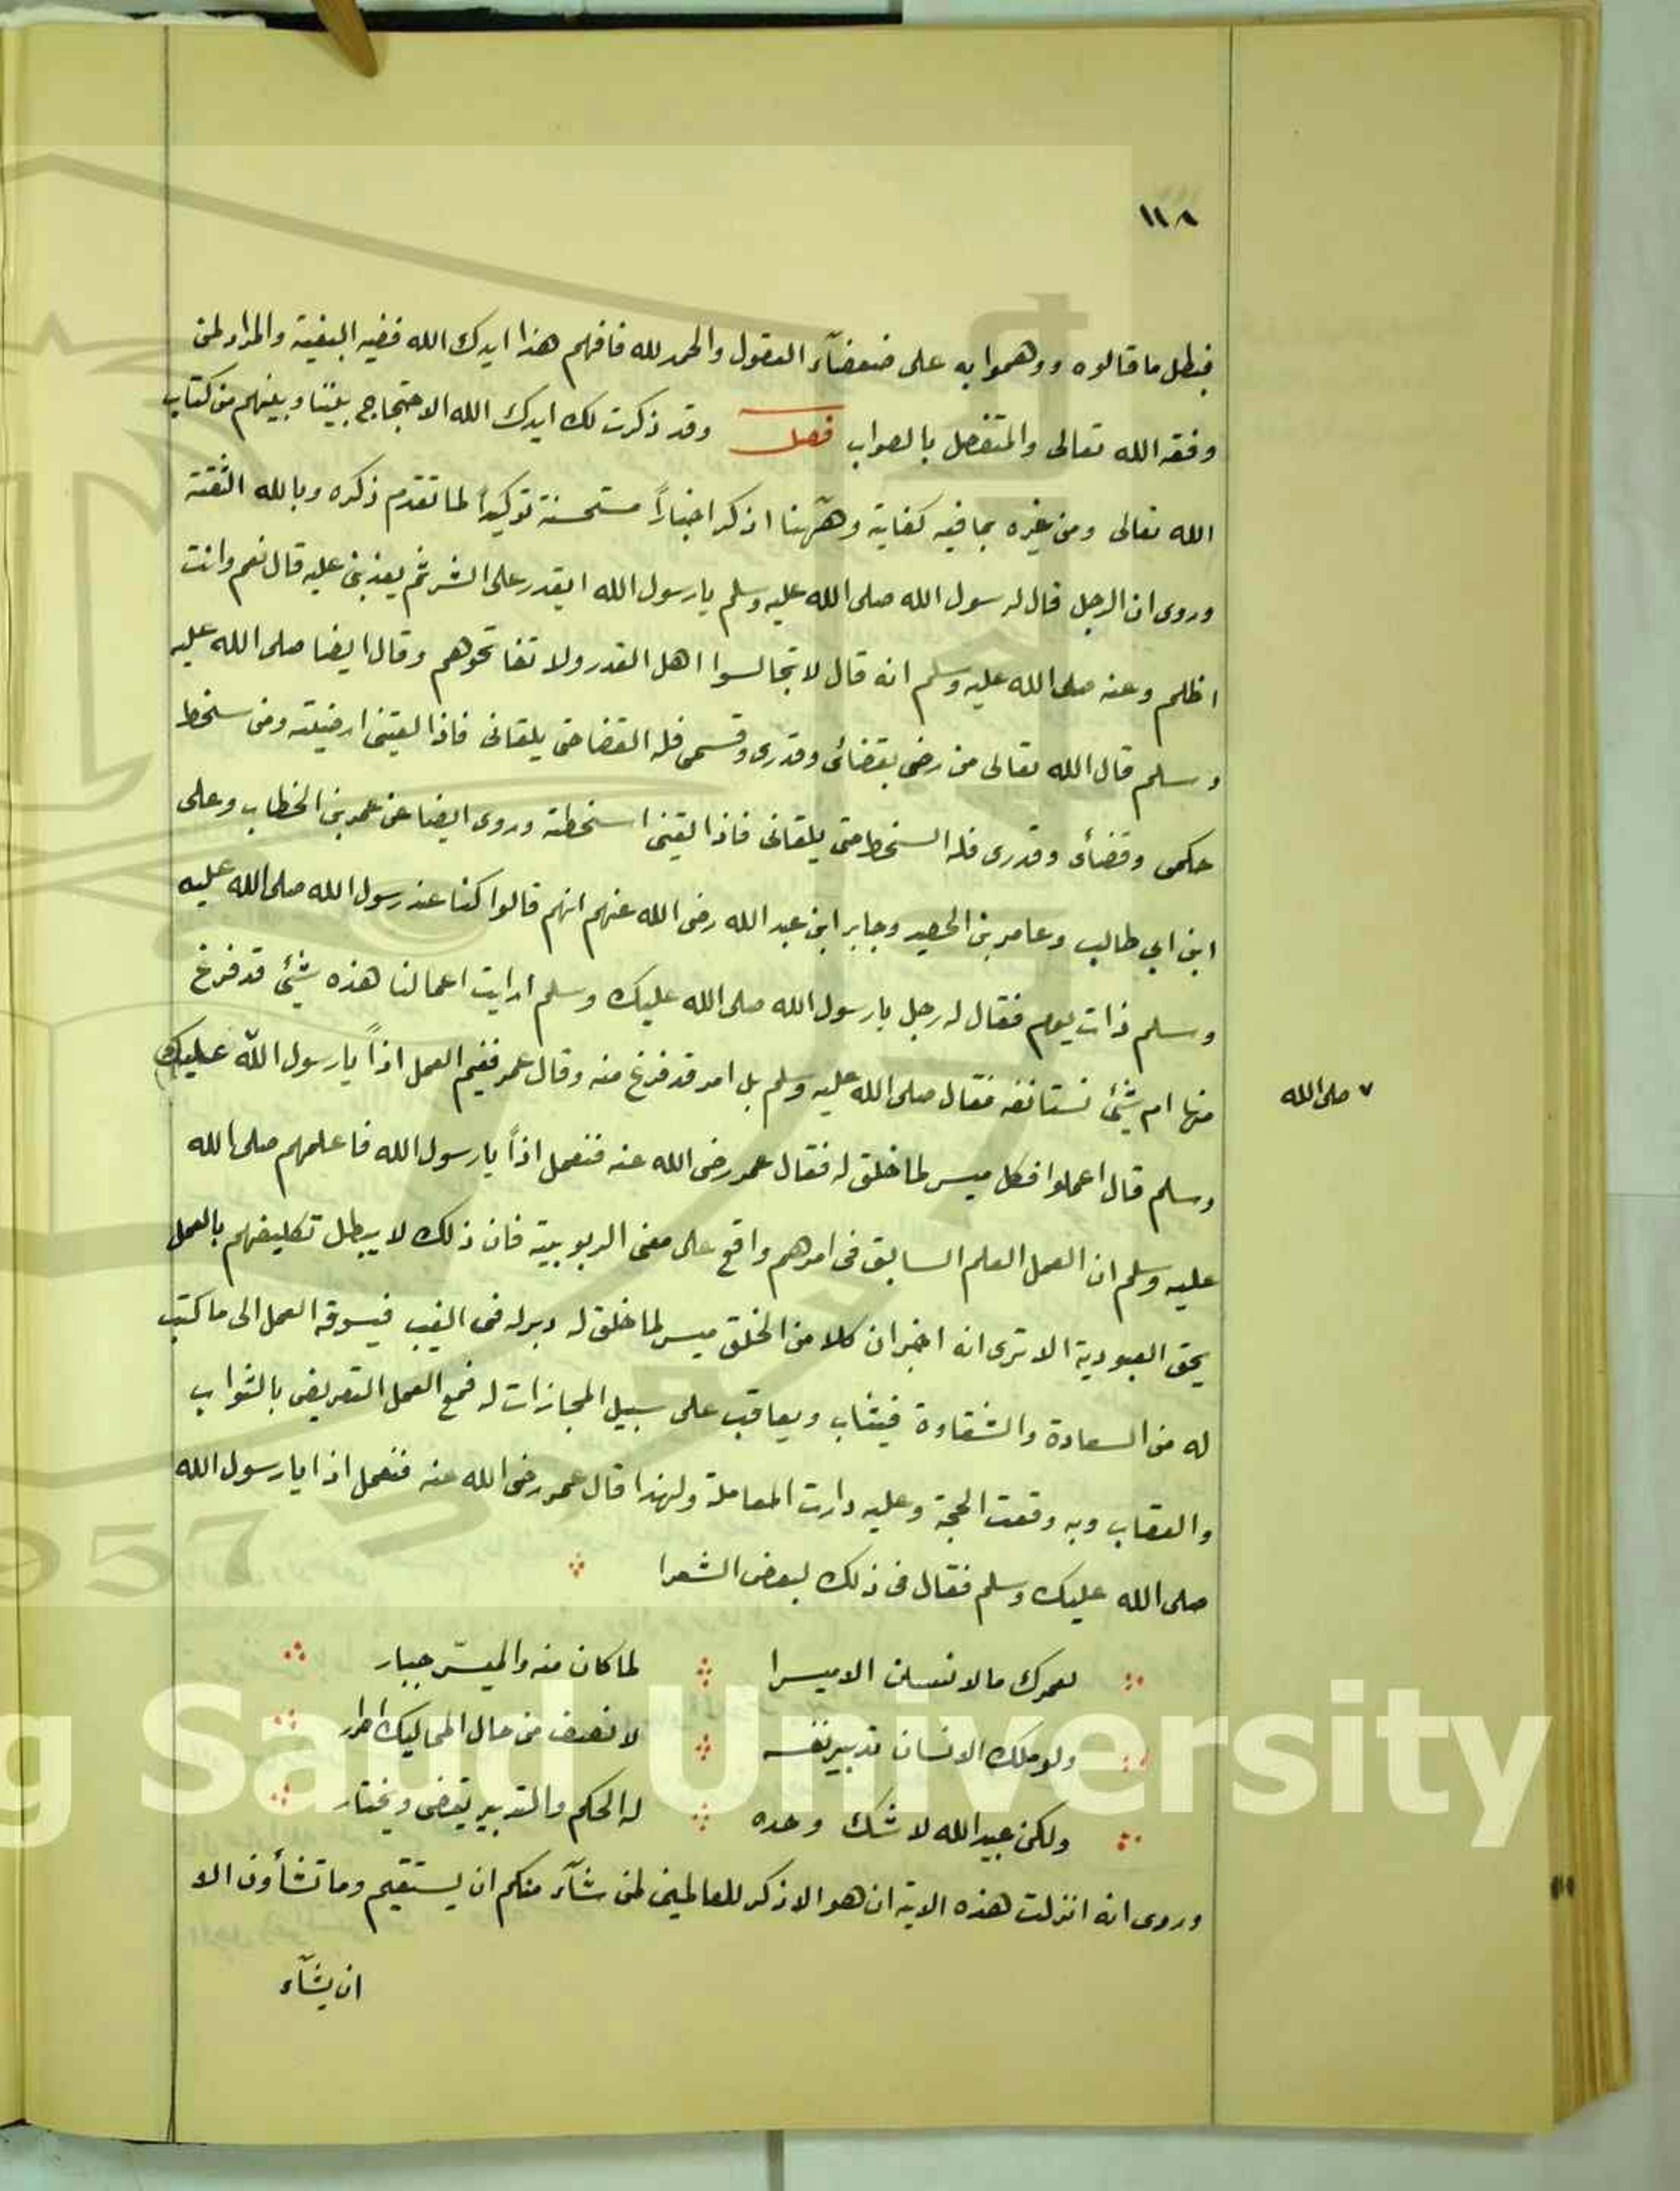 ١١٨
فبطل ما قالوه ووهموا به على ضعفآء العقول والحمد لله فافهم هذا ايدك الله ففيه البغية والمراد لمن
وفقه الله تعالى والمتفضل بالصواب فصل وقد ذكرت لك ايدك الله الاحتجاج بيننا وبينهم من كتاب
الله تعالى ومن غيره بما فيه كفاية وهٓهنا اذكر اخباراً مستحسنة توكيداً لما تقدم ذكره وبالله الثقة
وروى ان الرجل قال لرسول الله صلى الله عليه وسلم يا رسول الله ايقدر على الشر ثم يعذبنى عليه قال نعم وانت
اظلم وعنه صلى الله عليه وسلم انه قال لا تجالسوا اهل القدر ولا تفاتحوهم وقال ايضا صلى الله عليه
وسلم قال الله تعالى من رضى بقضائى وقدرى وقسمى فله القضا حتى يلقانى فاذا لقينى ارضيته ومن سخط
حكمى وقضأى وقدرى فله السخط حتى يلقانى فاذا لقينى اسخطته وروى ايضا عن عمر بن الخطاب وعلى
ابن ابي طالب وعامر بن الحصيد وجابر ابن عبد الله رضى الله عنهم انهم قالوا كنا عند رسول الله صلى الله عليه
وسلم ذات يوم فقال له رجل يا رسول الله صلى الله عليك وسلم ارايت اعمالنا هذه شيئ قد فرغ
منها ام شيئ نستانفه فقال صلى الله عليه وسلم بل امر قد فرغ منه وقال عمر ففيم العمل اذاً يا رسول الله عليك
٧ صلى الله
وسلم قال اعملوا فكل ميسر لما خلق له فقال عمر رضى الله عنه فنعمل اذاً يا رسول الله فاعلمهم صلى الله
عليه وسلم ان العمل العلم السابق فى امرهم واقع على معنى الربوبية فان ذلك لا يبطل تكليفهم بالعمل
بحق العبودية الا ترى انه اخبر ان كلا من الخلق ميسر لما خلق له دبر له فى الغيب فيسوقه العمل الى ما كتب
له من السعادة والشقاوة فيثاب ويعاقب على سبيل المجازات له فمع العمل التعريض بالثواب
والعقاب وبه وقعت الحجة وعليه دارت المعاملة ولهذا قال عمر رضى الله عنه فنعمل اذا يا رسول الله
صلى الله عليك وسلم فقال فى ذلك لبعض الشعرا
لعمرك ما الانسان الا ميسرا لما كان منه والميسّر جبار
ولو ملك الانسان تدبير نفسه لانصف من حال المماليك احرار
ولكن عبيد الله لا شك وحده له الحكم والتدبير يقضى ويختار
وروى انه انزلت هذه الاية ان هو الا ذكر للعالمين لمن شآء منكم ان يستقيم وما تشأون الا
ان يشآء